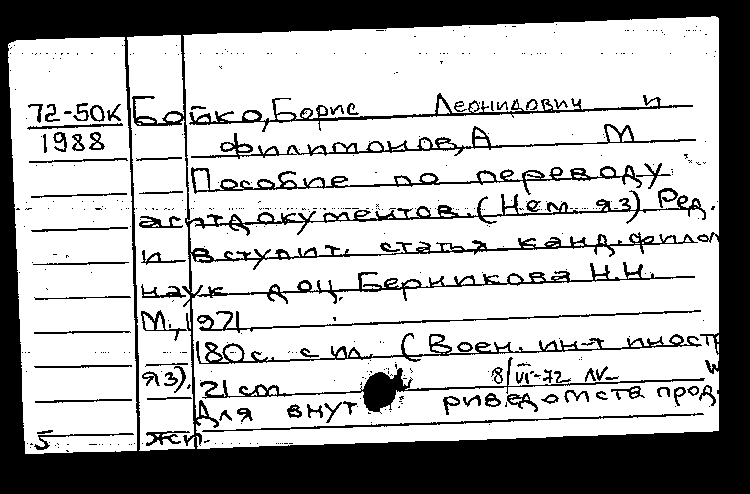 72-50к Бойко, Борис Леонидович и
1988 Филимонов, А М
Пособие по переводу
документов. (Нем. яз) Ред.
и вступит. статья канд. филол
наук доц. Берникова Н.Н.
М., 1971.
180 с. с ил. (Воен. ин-т иностр
яз). 21 cm 8/VI-72
Для внут риведомств прод.
5 экз.